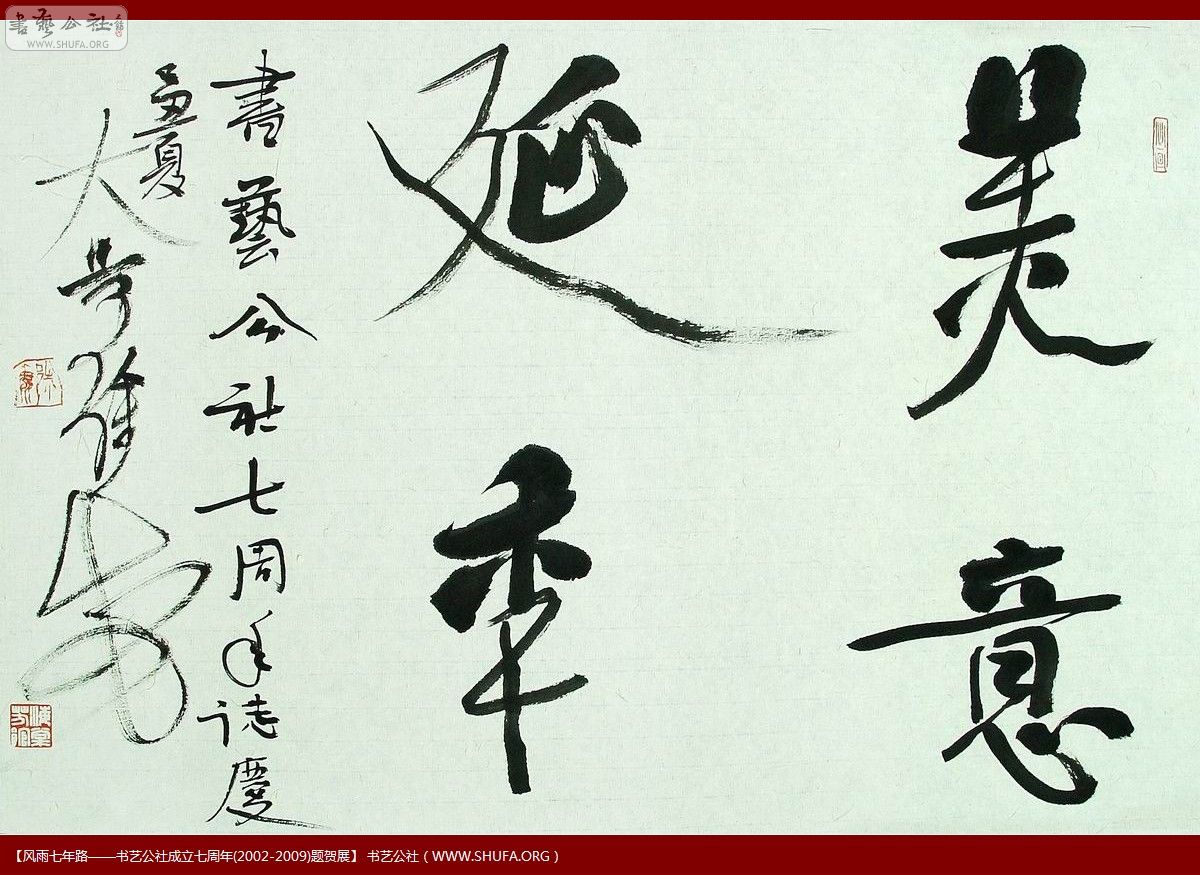 書藝公社
WWW.SHUFA.ORG
美意
延年
書藝公社七周年誌慶
夏
大
【风雨七年路——书艺公社成立七周年(2002-2009)题贺展】 书艺公社 ( WWW.SHUFA.ORG )